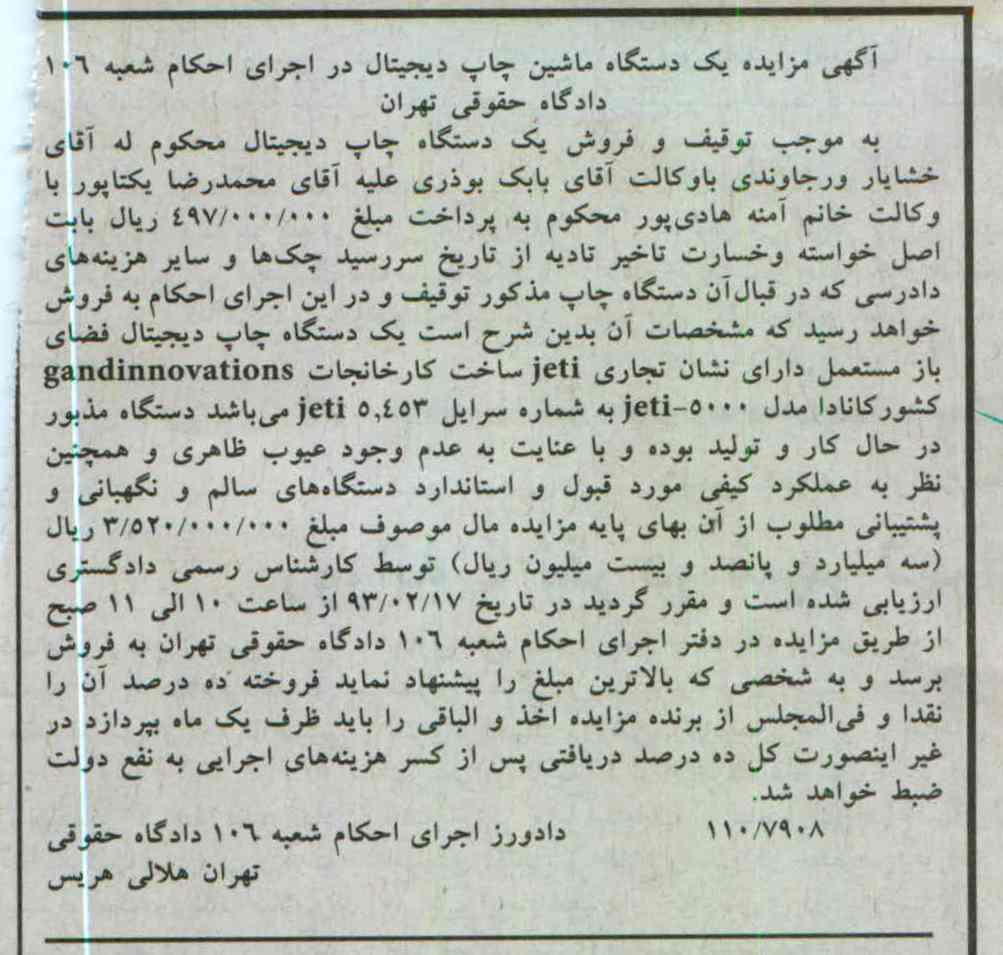 آگهی مزایده یک دستگاه ماشین چاپ دیجیتال در اجرای احکام شعبه ١٠٦
دادگاه حقوقی تهران
به موجب توقیف و فروش یک دستگاه چاپ دیجیتال محکوم له آقای
خشایار ورجاوندی باوکالت آقای بابک بوذری علیه آقای محمدرضا یکتاپور با
وکالت خانم آمنه هادی‌پور محکوم به پرداخت مبلغ ٤٩٧/٠٠٠/٠٠٠ ریال بابت
اصل خواسته وخسارت تاخیر تادیه از تاریخ سررسید چک‌ها و سایر هزینه‌های
دادرسی که در قبال‌آن دستگاه چاپ مذکور توقیف و در این اجرای احکام به فروش
خواهد رسید که مشخصات آن بدین شرح است یک دستگاه چاپ دیجیتال فضای
باز مستعمل دارای نشان تجاری jeti ساخت کارخانجات gandinnovations
کشورکانادا مدل jeti-٥٠٠٠ به شماره سرایل jeti ٥,٤٥٣ می‌باشد دستگاه مذبور
در حال کار و تولید بوده و با عنایت به عدم وجود عیوب ظاهری و همچنین
نظر به عملکرد کیفی مورد قبول و استاندارد دستگاه‌های سالم و نگهبانی و
پشتیبانی مطلوب از آن بهای پایه مزایده مال موصوف مبلغ ٣/٥٢٠/٠٠٠/٠٠٠ ریال
(سه میلیارد و پانصد و بیست میلیون ریال) توسط کارشناس رسمی دادگستری
ارزیابی شده است و مقرر گردید در تاریخ ٩٣/٠٢/١٧ از ساعت ١٠ الی ١١ صبح
از طریق مزایده در دفتر اجرای احکام شعبه ١٠٦ دادگاه حقوقی تهران به فروش
برسد و به شخصی که بالاترین مبلغ را پیشنهاد نماید فروخته ده درصد آن را
نقدا و فی‌المجلس از برنده مزایده اخذ و الباقی را باید ظرف یک ماه بپردازد در
غیر اینصورت کل ده درصد دریافتی پس از کسر هزینه‌های اجرایی به نفع دولت
ضبط خواهد شد.
١١٠/٧٩٠٨ دادورز اجرای احکام شعبه ١٠٦ دادگاه حقوقی
تهران هلالی هریس